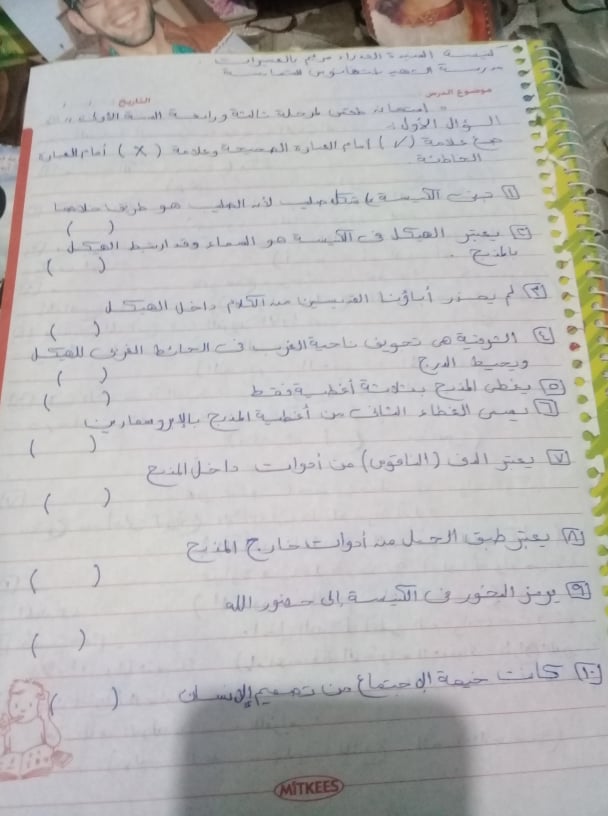 كنيسة السيدة العذراء مريم
مدرسة الشهيد اسطفانوس للشمامسة
موضوع الدرس التاريخ / /
امتحان طقس لمرحلة ثالثة ورابعة السنة الأولى
السؤال الأول:
ضع علامة (√) أمام العبارة الصحيحة وعلامة (X) أمام العبارة
الخاطئة
١ تبنى الكنيسة على شكل صليب لأن الصليب هو طريق خلاصنا
( )
٢ يعتبر الهيكل في الكنيسة هو السماء وقد ارتبط الهيكل
بالمذبح . ( )
٣ لم يحذر أباؤنا القديسين من الكلام داخل الهيكل
( )
٤ الشرقية هى تجويف ناحية الغرب فى الحائط الغربى للهيكل
ويحيط الدرج ( )
٥ يغطى المذبح بثلاثة أغطية فقط ( )
٦ يسمى الغطاء الثانى من أغطية المذبح بالإبروسفارين
( )
٧ يعتبر الدف (الناقوس) من أدوات داخل المذبح
( )
٨ يعتبر طبق الحمل من أدوات خارج المذبح
( )
٩ يرمز البخور فى الكنيسة إلى حضور الله
( )
١٠ كانت خيمة الإجتماع من تصميم إنسان ( )
MITKEES